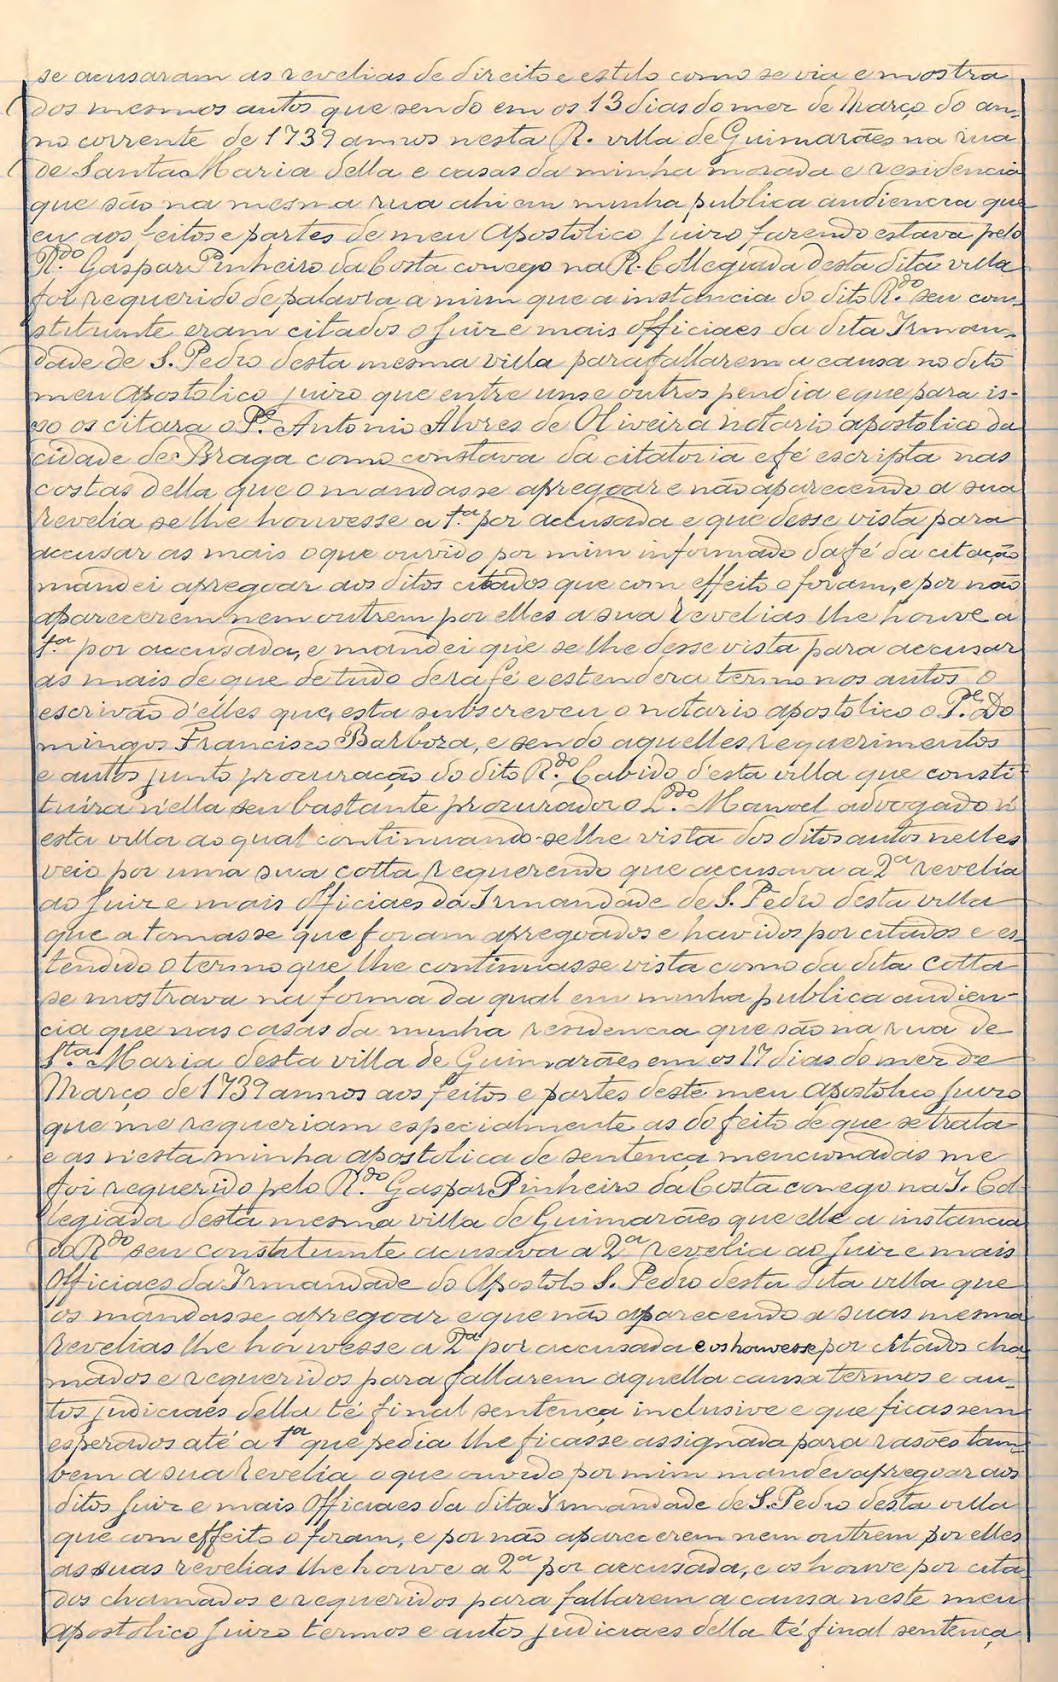 se acusaram as revelias de direito e estilo como se via e mostra
dos mesmos autos que sendo em os 13 dias do mez de Março do an-
no corrente de 1739 annos nesta R. villa de Guimarães na rua
de Santa Maria della e casas da minha morada e residencia
que são na mesma rua ahi em minha publica audiencia que
eu aos feitos e partes de meu Apostolico Juizo fazendo estava pelo
R.do Gaspar Pinheiro da Costa conego na R. Collegiada desta dita villa
foi requerido de palavra a mim que a instancia do dito R.do seu con-
stituinte eram citados o Juiz e mais Officiaes da dita Irman-
dade de S. Pedro desta mesma villa para fallarem a causa no dito
meu Apostolico juizo que entre uns e outros pendia e que para is-
so os citara o P.e Antonio Alvres de Oliveira notario apostolico da
cidade de Braga como constava da citatoria e fé escripta nas
costas della que o mandasse apregoar e não aparecendo a sua
revelia se lhe houvesse a 1.a por accusada e que desse vista para
accusar as mais o que ouvido por mim informado da fé da citação
mandei apregoar aos ditos citados que com effeito o foram, e por não
aparecerem nem outrem por elles a sua revelias lhe houve a
1.a por accusada, e mandei que se lhe desse vista para accusar
as mais de que de tudo dera fé e estendera termo nos autos o
escrivão d'elles que esta subscreveu o notario apostolico o P.e Do
mingos Francisco Barboza, e sendo aquelles requerimentos
e autos junto procuração do dito R.do Cabido d'esta villa que consti-
tuira n'ella seu bastante procurador o L.do Manoel advogado n'
esta villa ao qual continuando-se lhe vista dos ditos autos nelles
veio por uma sua cotta requerendo que accusava a 2.a revelia
ao Juiz e mais Officiaes da Irmandade de S. Pedro desta villa
que a tomasse que foram apregoados e havidos por citados e es-
tendido o termo que lhe continuasse vista como da dita cotta
se mostrava na forma da qual em minha publica audien-
cia que nas casas da minha residencia que são na rua de
S.ta Maria desta villa de Guimarães em os 17 dias do mez de
Março de 1739 annos aos feitos e partes deste meu Apostolico Juizo
que me requeriam especialmente as do feito de que se trata
e as n'esta minha apostolica de sentença mencionadas me
foi requerido pelo R.do Gaspar Pinheiro da Costa conego na I. Col-
legiada desta mesma villa de Guimarães que elle a instancia
do R.do seu constituinte acusava a 2.a revelia ao Juiz e mais
Officiaes da Irmandade do Apostolo S. Pedro desta dita villa que
os mandasse apregoar e que não aparecendo a suas mesma
revelias lhe houvesse a 2.a por accusada e os houvesse por citados cha
mados e requeridos para fallarem aquella causa termos e au-
tos judiciaes della té final sentença inclusive e que ficassem
esperados até a 1.a que pedia lhe ficasse assignada para rasões tam
bem a sua revelia o que ouvido por mim mandei apregoar aos
ditos Juiz e mais Officiaes da dita Irmandade de S. Pedro desta villa
que com effeito o foram, e por não aparecerem nem outrem por elles
as suas revelias lhe houve a 2.a por accusada, e os houve por cita
dos chamados e requeridos para fallarem a causa neste meu
apostolico Juizo termos e autos judiciaes della té final sentença